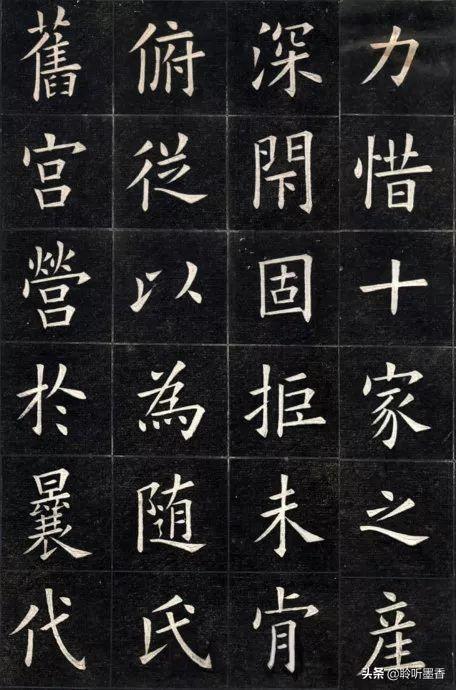 力惜十家之産
深閇固拒未肯
俯從以為随氏
舊宫營於曩代
头条 @聆听墨香